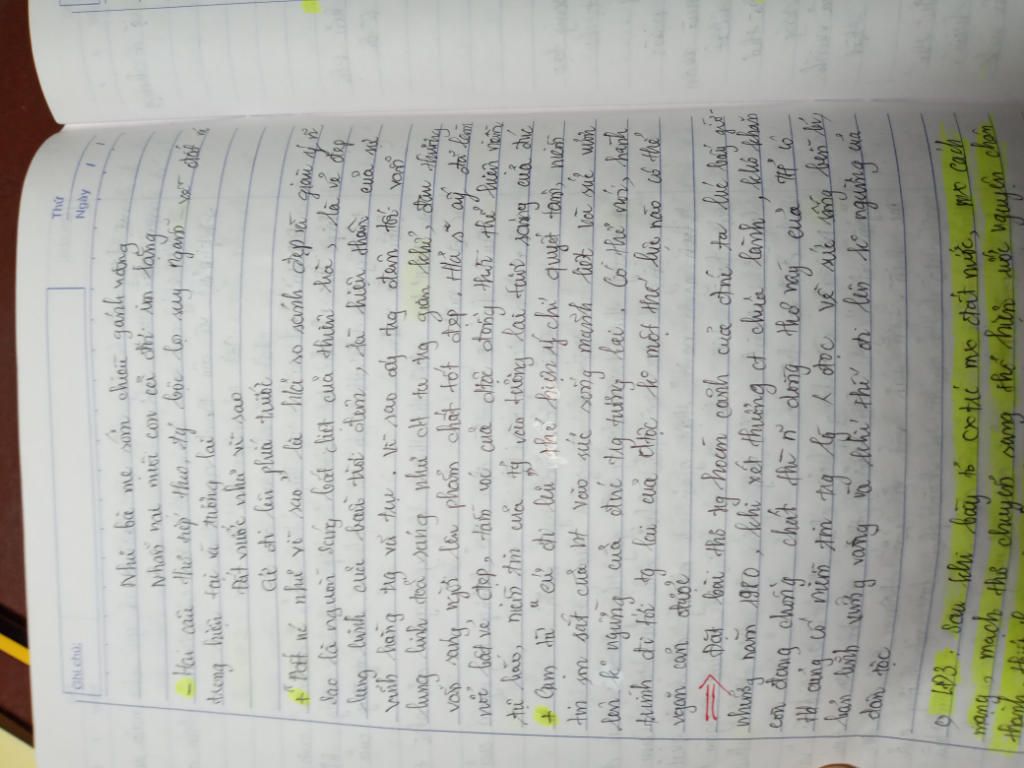 Thứ
Ngày
Ghi chú:
Như bà mẹ sớm chiều gánh nặng
Nhẫn nại nuôi con cả đời im lặng
- Hai câu thơ tiếp theo, tg bộc lộ suy ngẫm về đnc
trong hiện tại và tương lai
Đất nước như vì sao
Cứ đi lên phía trước
+ Đnc như vì sao, là h/ả so sánh đẹp và giàu ý n
Sao là nguồn sáng bất diệt của thiên hà, là vẻ đẹp
lung linh của bầu trời đêm, là hiện thân của sự
vĩnh hằng trg vũ trụ. Vì sao ấy trg đêm tối vẫn
lung linh toả sáng như ta trg gian khó, đau thương
vẫn sáng ngời lên phẩm chất tốt đẹp. H/ả s ấy đã làm
nổi bật vẻ đẹp, tầm vóc của đồng thời thể hiện niềm
tự hào, niềm tin của tg vào tương lai tươi sáng của đnc
+ Cụm từ "cứ đi lên" thể hiện ý chí quyết tâm, niềm
tin son sắt của nt vào sức sống mãnh liệt và sự vươn
lên k ngừng của đnc trg tương lai. Có thể nói, hành
trình đi tới tg lai của dtộc ko một thế lực nào có thể
ngăn cản được
=> Đặt bài thơ trg hoàn cảnh của đnc ta lúc bấy giờ
những năm 1980, khi vết thương ct chưa lành, khó khăn
còn đang chồng chất thì n dòng thơ này của TH có
củng cố niềm tin trg lý đọc về sức sống bền bỉ,
bản lĩnh vững vàng và khí thế đi lên k ngừng của
dân tộc
c) LĐ3: Sau khi bày tỏ cxúc mx đất nước, mx cách
mạng, mạch thơ chuyển sang thể hiện ước nguyện chân
thành